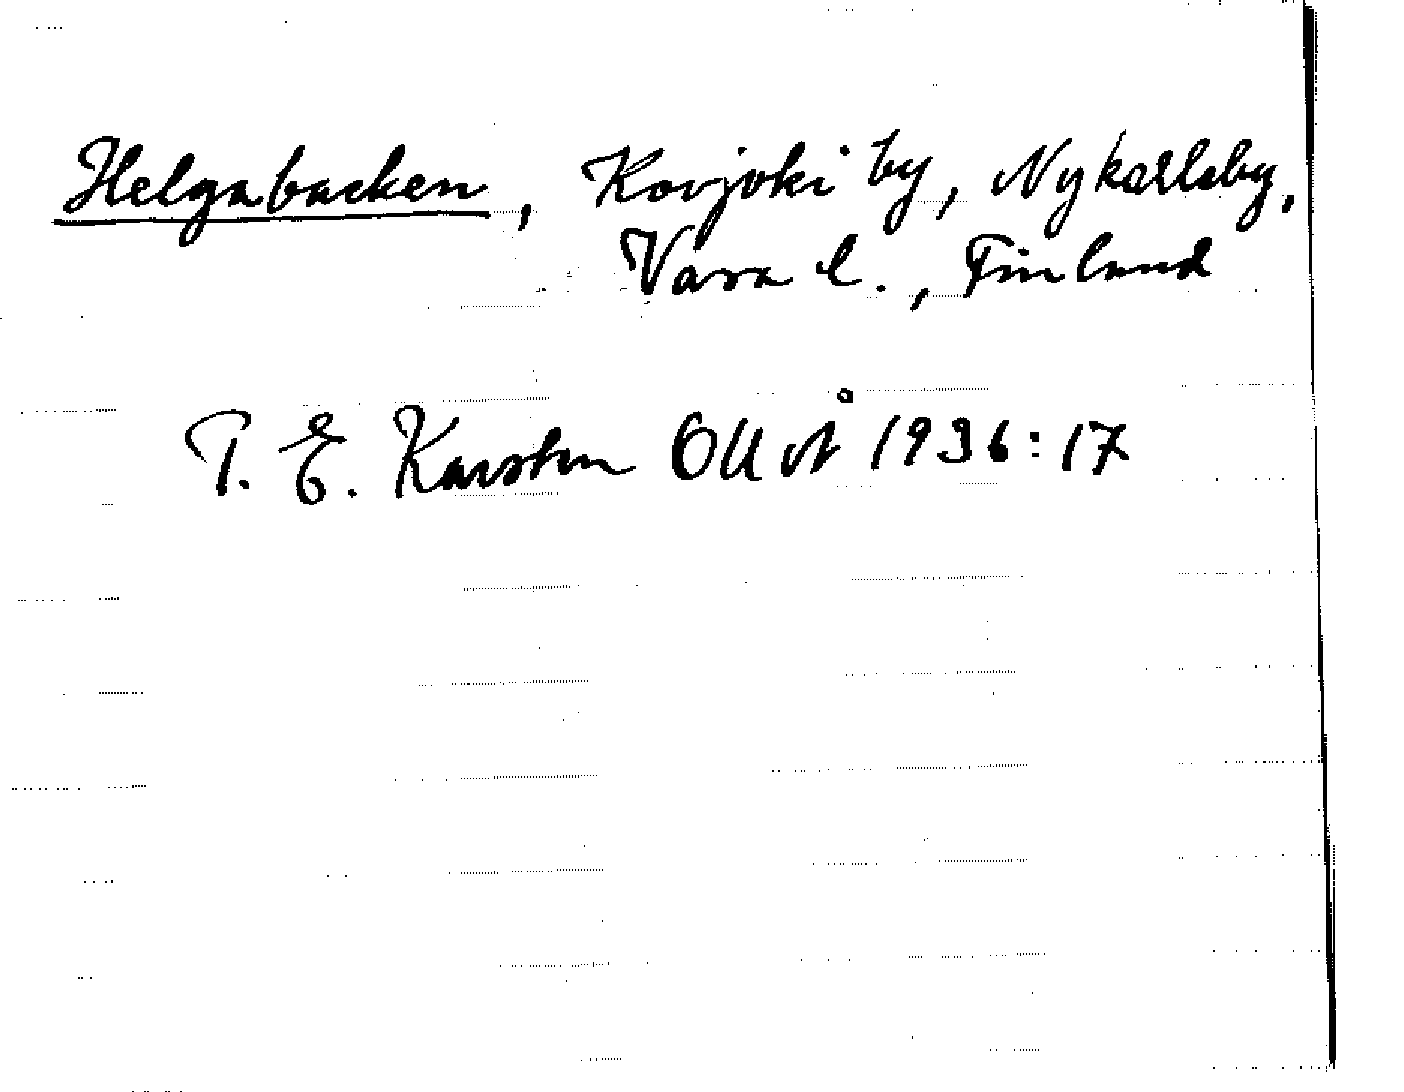 Helgabacken, Kovjoki by, Nykarleby,
Vasa l., Finland
T. E. Karsten 1936:17